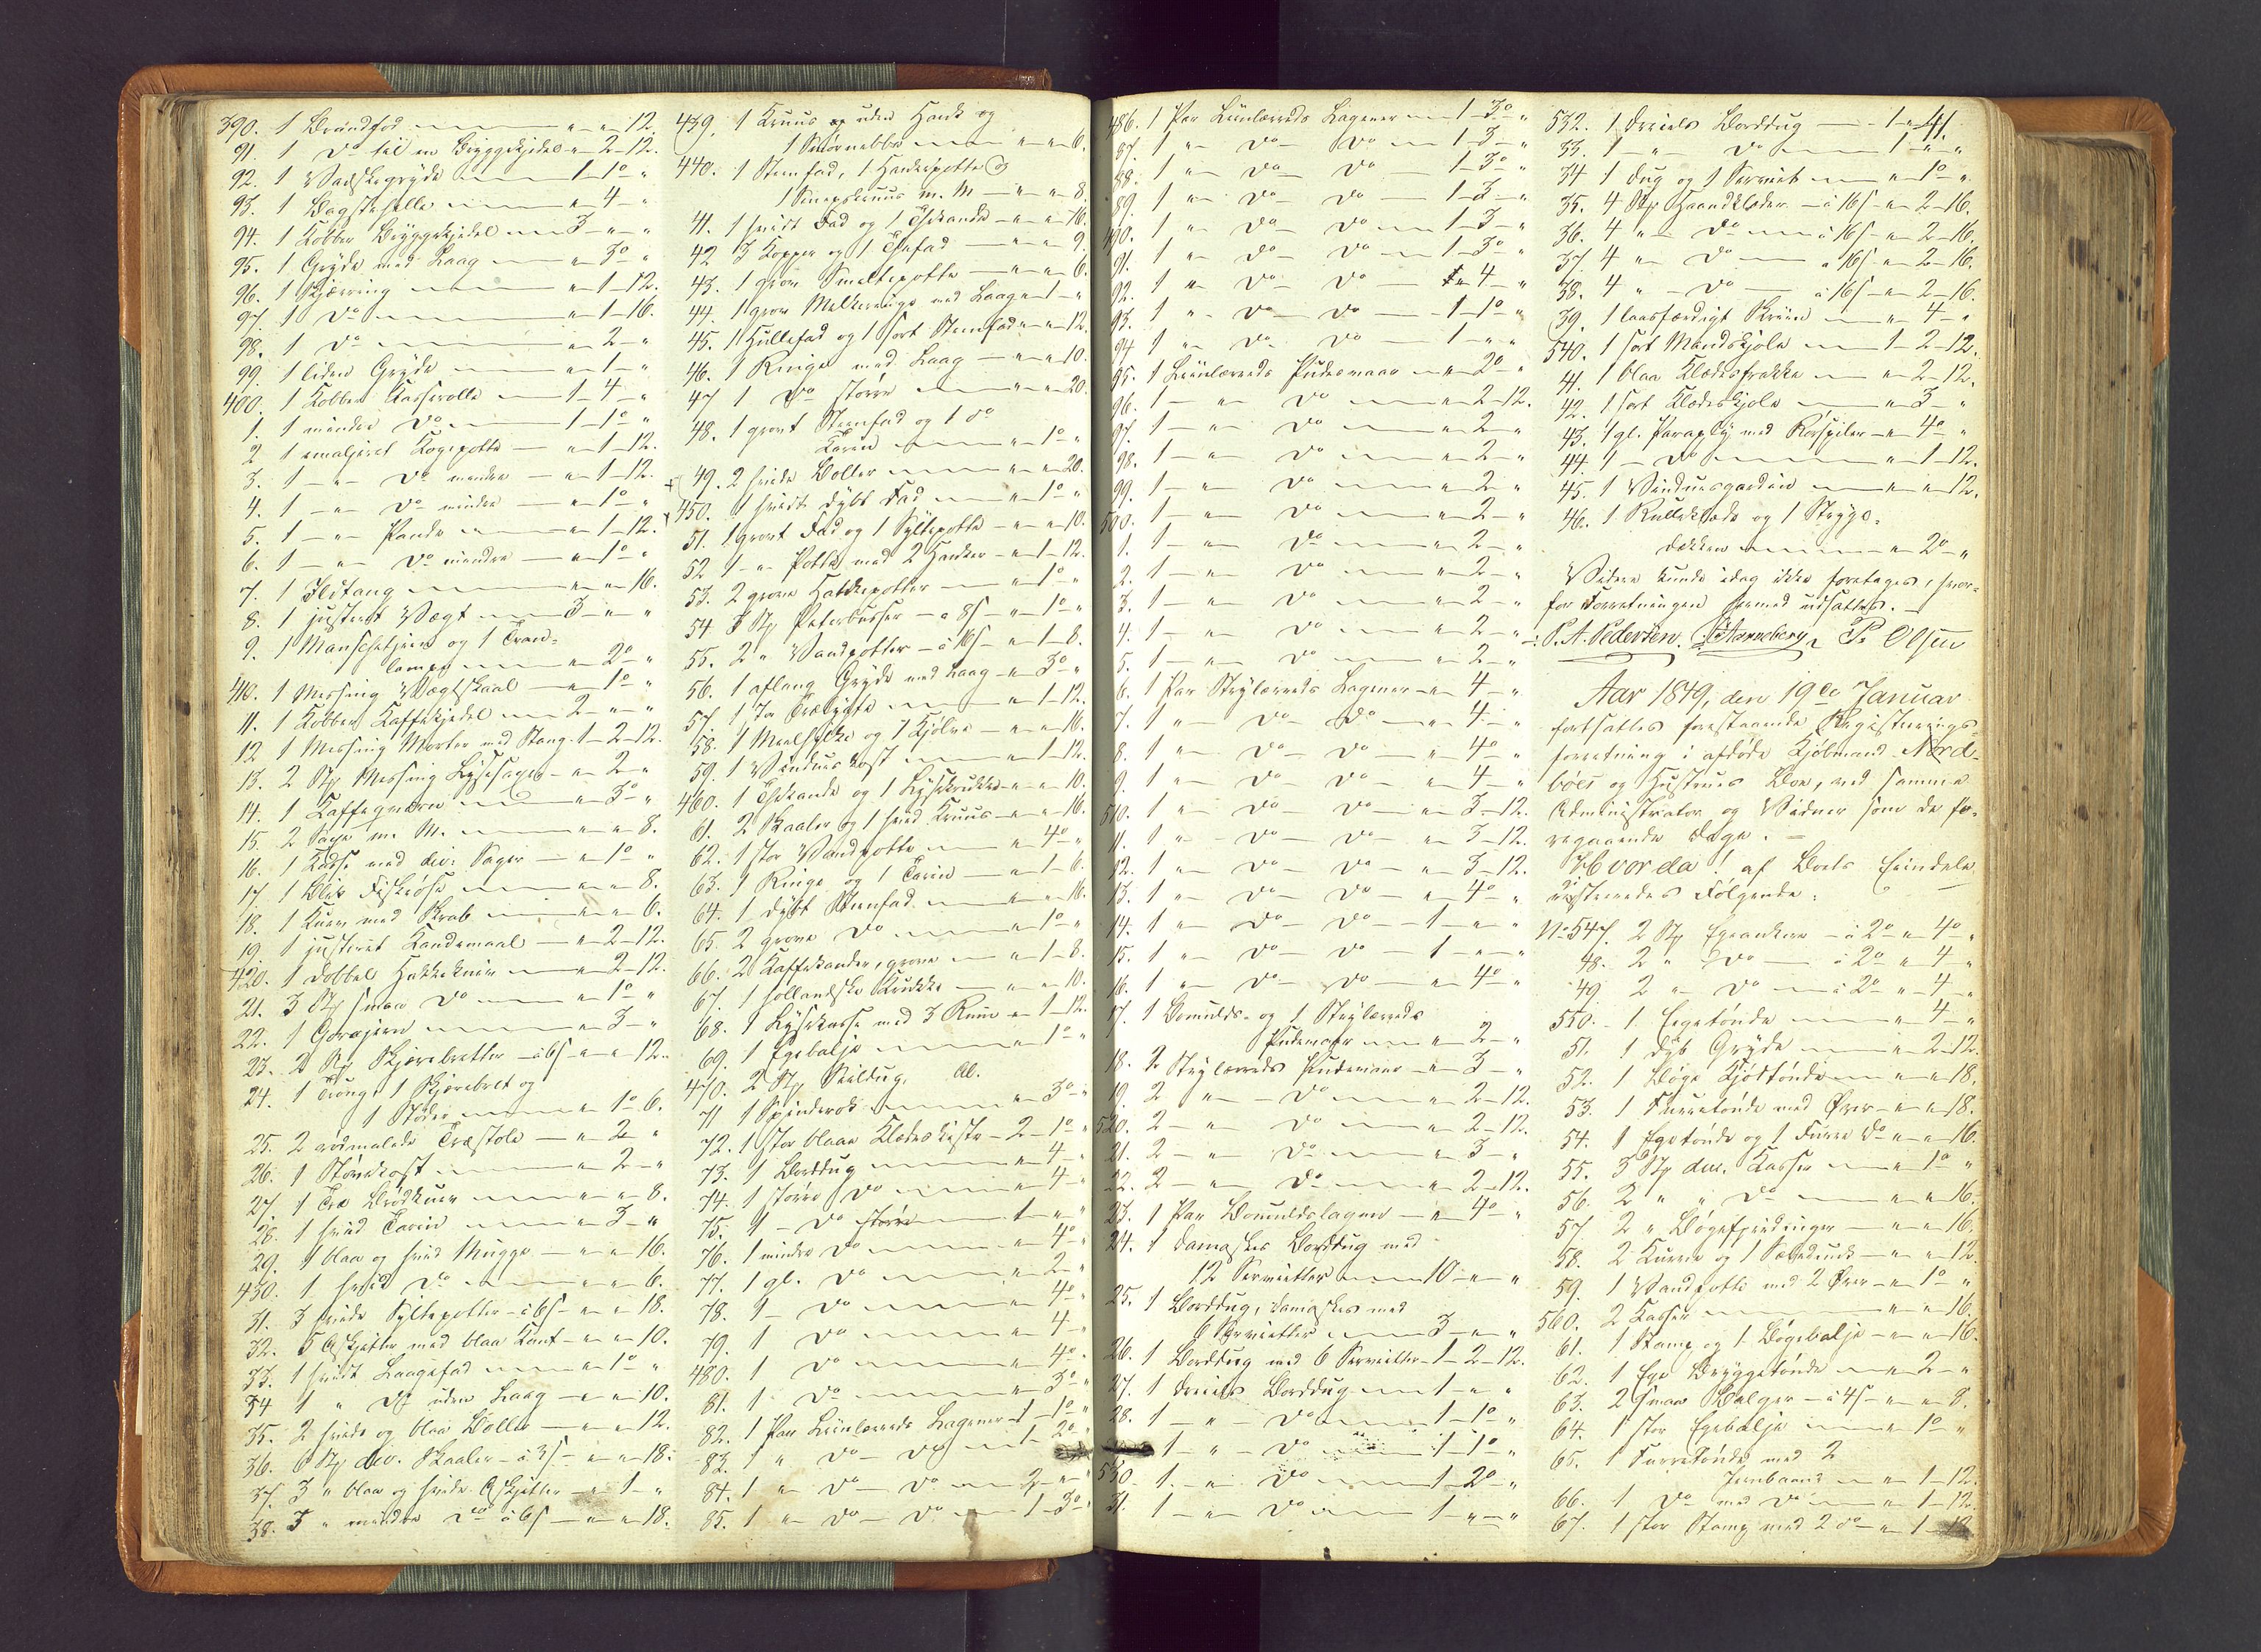 390. 1 Brændfod " " 12.
91. 1 Do til en Bryggekjedel " 2 - 12.
92. 1 Vadskegryde 1 - 1 - "
93. 1 Bagstehelle " 4 - "
94. 1 Kobber Bryggekjedel 3 - " - "
95. 1 Gryde med Laag " 3 - "
96. 1 Skjærring " 1 - 12.
97. 1 Do " 1 - 16.
98. 1 Do " 2 - "
99. 1 liden Gryde " 1 - "
400. 1 Kobber Kasserolle 1 - 4 - "
1. 1 mindre Do 1 - 1 - "
2 1 emaljeret Kogepotte " 1 - 12.
3. 1 - " - Do mindre " 1 - 12.
4. 1 - " - Do mindre " 1 - "
5. 1 - " - Pande " 1 - 12.
6. 1 - " - Do mindre " 1 - "
7. 1 Ildtang " " 16.
8. 1 justeret Vægt 3 - " - "
9. 1 og 1 Tran-
lampe " 2 - "
410. 1 Messing Vægtskaal " 1 - "
11. 1 Kobber Kaffekjedel 2 - " - "
12 1 Messing Morter med Stang 1 - 2 - 12.
13. 2 St Messing Lysesager " 2 - "
14. 1 Kaffeqværn " 3 - "
15. 2 Sager m. M. " " 8.
16. 1 Kasse med div: Sager " 1 - "
17. 1 Blik " " 8.
18. 1 Kurv med Skrab " " 6.
19. 1 justeret Kandemaal " 2 - 12.
420. 1 dobbel Hakkekniv " 2 - 12.
21. 3 St smaa Do " 1 - "
22. 1 Gorojern " 3 - "
23. 2 St Skjærebretter à 6 s " " 12.
24. 1 Traug 1 Skjærebret og
1 " 1 - 6.
25. 2 rødmalede Træstole " 2 - "
26. 1 " 2 - "
27. 1 Træ Brødkurv " " 8.
28. 1 hvid Terrin " 3 - "
29. 1 blaa og hvid Mugge " " 16.
430. 1 hvid Do " " 6.
31. 3 hvide Syltepotter à 6 s " " 18.
32. 5 Asjetter med blaa Kant " " 10.
33. 1 hvidt Laagefad " 1 - "
34 1 " Do uden Laag " " 10.
35. 2 hvide og blaa Boller " " 12.
36. 6 St div. Skaaler à 3 s " " 18.
37. 3 " blaa og hvide Asjetter " 1 - "
38. 3 " mindre Do à 6 s " " 18.
439. 1 Kruus uden Hank og
1 " " 6.
440. 1 Steenfad, 1 Hankepotte
1 Sennepskruus m. M " " 8.
41. 1 hvidt Fad og 1 Thekande " " 16.
42 3 Kopper og 1 Thefad " " 9.
43. 1 grov Smeltepotte " " 6.
44. 1 grov Melkeringe med Laag " 1 - "
45. 1 Hullefad og 1 sort Steenfad " " 12.
46. 1 Ringe med Laag " " 10.
47 1 Do større " " 20.
48. 1 grovt Steenfad og 1 do
Terrin " 1 - "
49. 2 hvide Boller " " 20.
450. 1 hvidt dybt Fad " 1 - "
51. 1 grovt Fad og 1 Syltepotte " " 10.
52 1 - " - Potte med 2 Hanker " 1 - 12.
53. 2 grove Hankepotter " 1 - "
54 3 St Peberbøsser à 8 s " 1 - "
55. 2 " Vandpotter à 16 s " 1 - 8.
56. 1 aflang Gryde med Laag " 3 - "
57. 1 " 1 - 12.
58. 1 og 1 " " 16.
59. 1 Vindueskost " 1 - 12.
460. 1 Thekande og 1 Lysekrukke " " 10.
61. 2 Skaaler og 1 hvid Kruus " " 16.
62. 1 stor Vandpotte " 4 - "
63. 1 Ringe og 1 Terrin " 1 - 6.
64. 1 dybt Steenfad " " 16.
65. 2 grove Do " 1 - "
66. 2 Kaffekander, grove " 1 - 8.
67. 1 hollandsk Krukke " " 10.
68. 1 Lysekasse med 3 Rum " 1 - 12.
69. 1 Egebalje " 1 - "
470. 2 St Seildug. Al. " 3 - "
71 1 Spinderok " 3 - "
72. 1 stor blaa Klædeskiste 2 - 1 - "
73. 1 Borddug " 4 - "
74. 1 større Do " 4 - "
75. 1 - Do større 1 - " - "
76. 1 mindre Do " 4 - "
77. 1 gl. Do " 2 - "
78. 1 - Do " 4 - "
79. 1 Do " 4 - "
480. 1 Do " 4 - "
81. 1 Do " 3 - "
82. 1 Par Liinlærreds Lagener 1 - 1 - "
83. 1 " Do - Do 1 - 2 - "
84. 1 " Do - Do 2 - " - "
85. 1 " Do - Do 1 - 3 - "
486. 1 Par Liinlærreds Lagener 1 - 3 - "
87. 1 " Do - Do 1 - 3 - "
88. 1 " Do - Do 1 - 3 - "
89. 1 " Do - Do 1 - 3 - "
490. 1 " Do - Do 1 - 3 - "
91. 1 " Do - Do 1 - 3 - "
92. 1 " Do - Do " 4 - "
93. 1 " Do - Do 1 - 1 - "
94 1 " Do - Do 1 - " - "
95. 1 Liinlærreds Pudevaar " 2 - "
96. 1 - " Do " 2 - 12.
97. 1 - " Do " 2 - "
98. 1 - " Do " 2 - "
99. 1 - " Do " 2 - "
500. 1 - " Do " 2 - "
1. 1 - " Do " 2 - "
2. 1 - " Do " 2 - "
3. 1 - " Do " 2 - "
4. 1 - " Do " 2 - "
5. 1 - " Do " 2 - "
6. 1 Par Strylærreds Lagener " 4 - "
7. 1 " Do - Do " 4 - "
8. 1 " Do - Do " 4 - "
9. 1 " Do - Do " 4 - "
510. 1 " Do - Do " 3 - 12.
11. 1 " Do - Do " 3 - 12.
12. 1 " Do - Do " 3 - 12.
13. 1 " Do - Do " 4 - "
14. 1 " Do - Do 1 - " - "
15. 1 " Do - Do 1 - " - "
16. 1 " Do - Do " 4 - "
17. 1 Bomulds- og 1 Strylærreds
Pudevaar " 2 - "
18. 2 Strylærreds Pudevaar " 3 - "
19. 2 - " - Do " 2 - 12.
520. 2 - " Do " 2 - 12.
21. 2 - " Do " 3 - "
22. 2 - " Do " 2 - 12.
23. 1 Par Bomuldslagner " 4 - "
24. 1 damaskes Borddug med
12 Servietter 10 - " - "
25. 1 Borddug, damaskes med
6 Servietter 3 - " - "
26. 1 Borddug med 6 Servietter 1 - 2 - 12.
27. 1 Dreiels Borddug 1 - " - "
28. 1 - " - Do 1 - 1 - "
1 - " - Do 1 - 1 - "
530. 1 - " - Do 1 - 2 - "
31. 1 - " - Do 1 - " - "
532. 1 Dreiels Borddug 1 - "
33. 1 - " - Do 1 - " - "
34 1 Dug og 1 Serviet " 1 - "
35. 4 St Haandklæder à 16 s " 2 - 16.
36. 4 " Do à 16 s " 2 - 16.
37 4 " Do à 16 s " 2 - 16.
38. 4 " Do à 16 s " 2 - 16.
39. 1 laasfærdigt Skriin " 4 - "
540. 1 sort Mandskjole 1 - 2 - 12.
41. 1 blaa Klædesfrakke " 2 - 12.
42. 1 sort Klædeskjole " 3 - "
43. 1 gl. Paraply med Rørspiler " 4 - "
44. 1 - Do " 1 - 12.
45. 1 Vinduesgardin " " 12.
46. 1 Rulleklæde og 1 Stryge-
dækken " 2 - "
Videre kunde idag ikke foretages, hvor-
for Forretningen hermed udsattes. -
P. A. Pedersen. Hanneberg P. Olsen
Aar 1849, den 19de Januar
fortsattes forestaaende Registrerings-
forretning i afdøde Kjøbmand Nord-
böes og Hustrues Boe, ved samme
Administrator og Vidner som de fo-
regaaende Dage. -
Hvorda! af Boets Eiendele
registreredes Følgende:
No 547. 2 St Egeankere à 2 " 4 - "
48. 2 " Do à 2 " 4 - "
49. 2 " Do à 2 " 4 - "
550. 1 Egetønde " 4 - "
51. 1 dyb Gryde " 2 - 12.
52. 1 Bøge Kjødtønde " " 18.
53. 1 Furretønde med Ører " " 18.
54. 1 Egetønde og 1 Furre Do " " 16.
55. 3 St div. Kasser " 1 - "
56. 2 " " Do " " 16.
57. 2 " Bøgefjerdinger " " 16.
58. 2 Kurve og 1 " " 12.
59. 1 Vandbøtte med 2 Ører " 1 - "
560. 2 Kasser " " 16.
61. 1 Stamp og 1 Bøgebalje " " 16.
62. 1 Ege Bryggetønde " 2 - "
63. 2 smaa Balger à 4 s " " 8.
64. 1 stor Egebalje " 1 - "
65. 1 Furretønde med 2
Jernbaand " 1 - 12.
66. 1 Do med Do " 1 - 12.
67. 1 stor Stamp med 2 do " 1 - 12